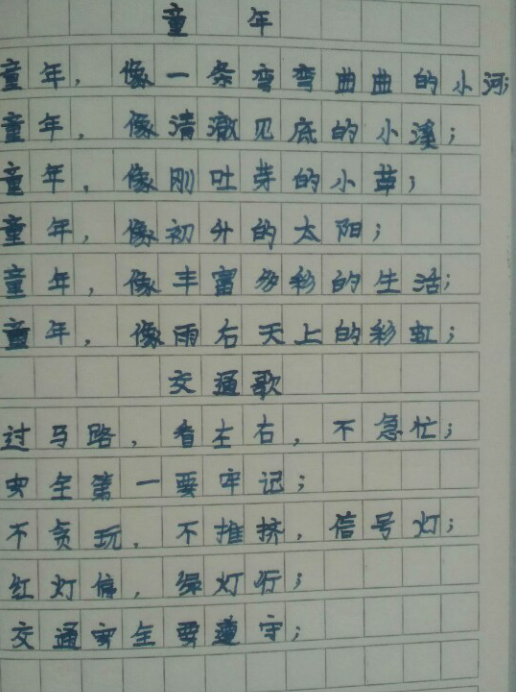 童年
童年，像一条弯弯曲曲的小河；
童年，像清澈见底的小溪；
童年，像刚吐芽的小草；
童年，像初升的太阳；
童年，像丰富多彩的生活；
童年，像雨右天上的彩虹；
交通歌
过马路，看左右，不急忙；
安全第一要牢记；
不贪玩，不推挤，信号灯；
红灯停，绿灯行；
交通安全要遵守；